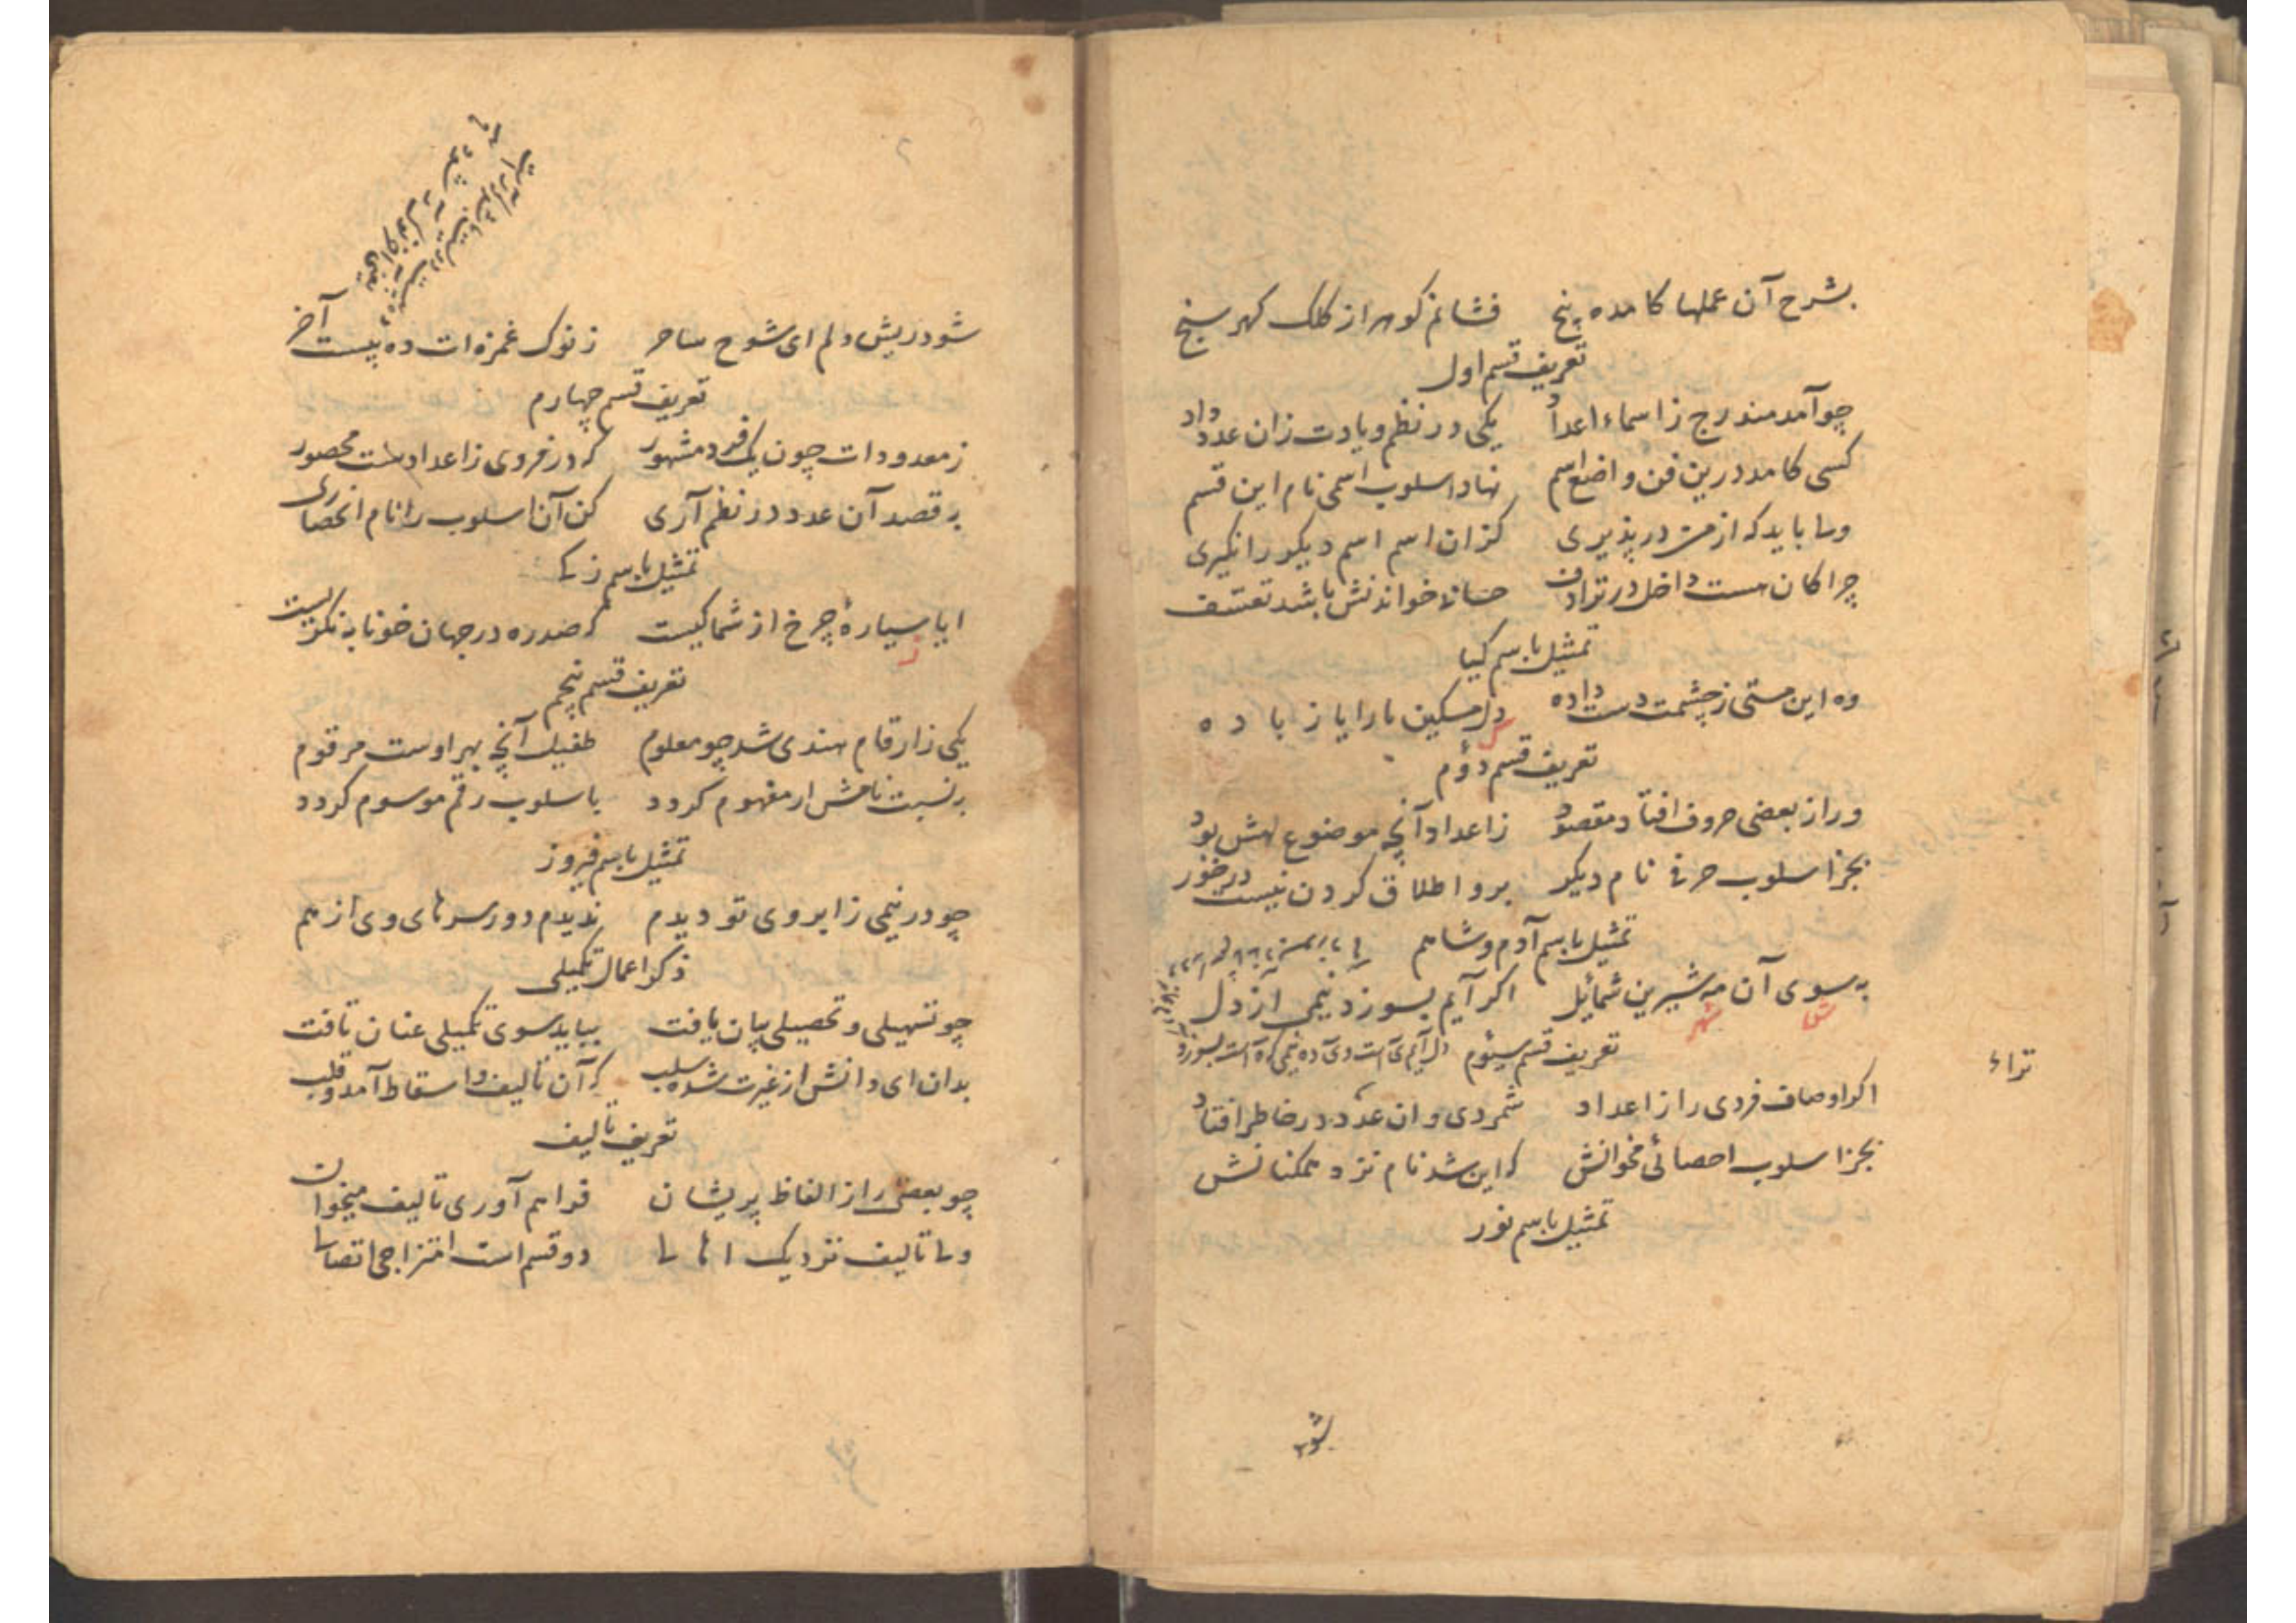 بشرح آن عملها کامده پنج فشانم کوهر از کلک کهر سنج
تعریف قسم اول
چو آمد مندرج ز اسماء اعداد یکی در نظم و یادت زان عدد داد
کسی کامد درین فن واضع اسم نهاد اسلوب اسمی نام این قسم
ولی باید که از من در پذیری کزان اسم اسم دیکر را نکیری
چرا کان هست داخل در ترادف حسابی خواندنش باشد تعسف
تمثیل باسم کیا
وه این مستی ز چشمت دست داده دل مسکین ما را یا ز باده
تعریف قسم دؤم
ور از بعضی حروف افتاد مقصود ز اعداد آنچه موضوع لهش بود
بجز اسلوب حرفی نام دیکر برو اطلاق کردن نیست در خور
تمثیل باسم آدم و شاهم
به سوی آن مه شیرین شمائیل اکر آیم بسوزد نیمی از دل
تعریف قسم سیؤم
اکر اوصاف فردی را ز اعداد شمردی وان عدد در خاطر افتاد
بجز اسلوب احصائی مخوانش که این شد نام نزد همکنانش
تمثیل باسم نور
شود ریش دلم ای شوخ ساحر ز نوک غمزه ات ده بیست آخر
تعریف قسم چهارم
ز معدودات چون یک فرد مشهور که در فردی ز اعداد است محصور
به قصد آن عدد در نظم آری کن آن اسلوب را نام انحصاری
تمثیل باسم زکی
ایا سیارۀ چرخ از شما کیست که صد ره در جهان خونابه نکریست
تعریف قسم پنجم
یکی ز ارقام هندی شد چو معلوم طفیل آنچه بهر اوست مرقوم
به نسبت نامش ار مفهوم کردد باسلوب رقم موسوم کردد
تمثیل باسم فیروز
چو در نیمی ز ابروی تو دیدم ندیدم دور سرهای وی از هم
ذکر اعمال تکمیلی
چو تسهیلی و تحصیلی بیان یافت بباید سوی تکمیلی عنان تافت
بدان ای دانش از غیرت شده سلب که آن تالیف و اسقاط آمد و قلب
تعریف تالیف
چو بعضی را ز الفاظ پریشان فراهم آوری تالیف میخوان
ولی تالیف نزدیک اهالی دو قسم است امتزاجی اتصالی